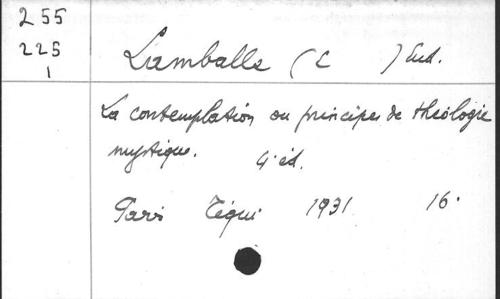 255
225
1
Lamballe (E ) Eud.
La contemplation ou principes de théologie
mystique. 4e éd.
Paris Téqui 1931 16°